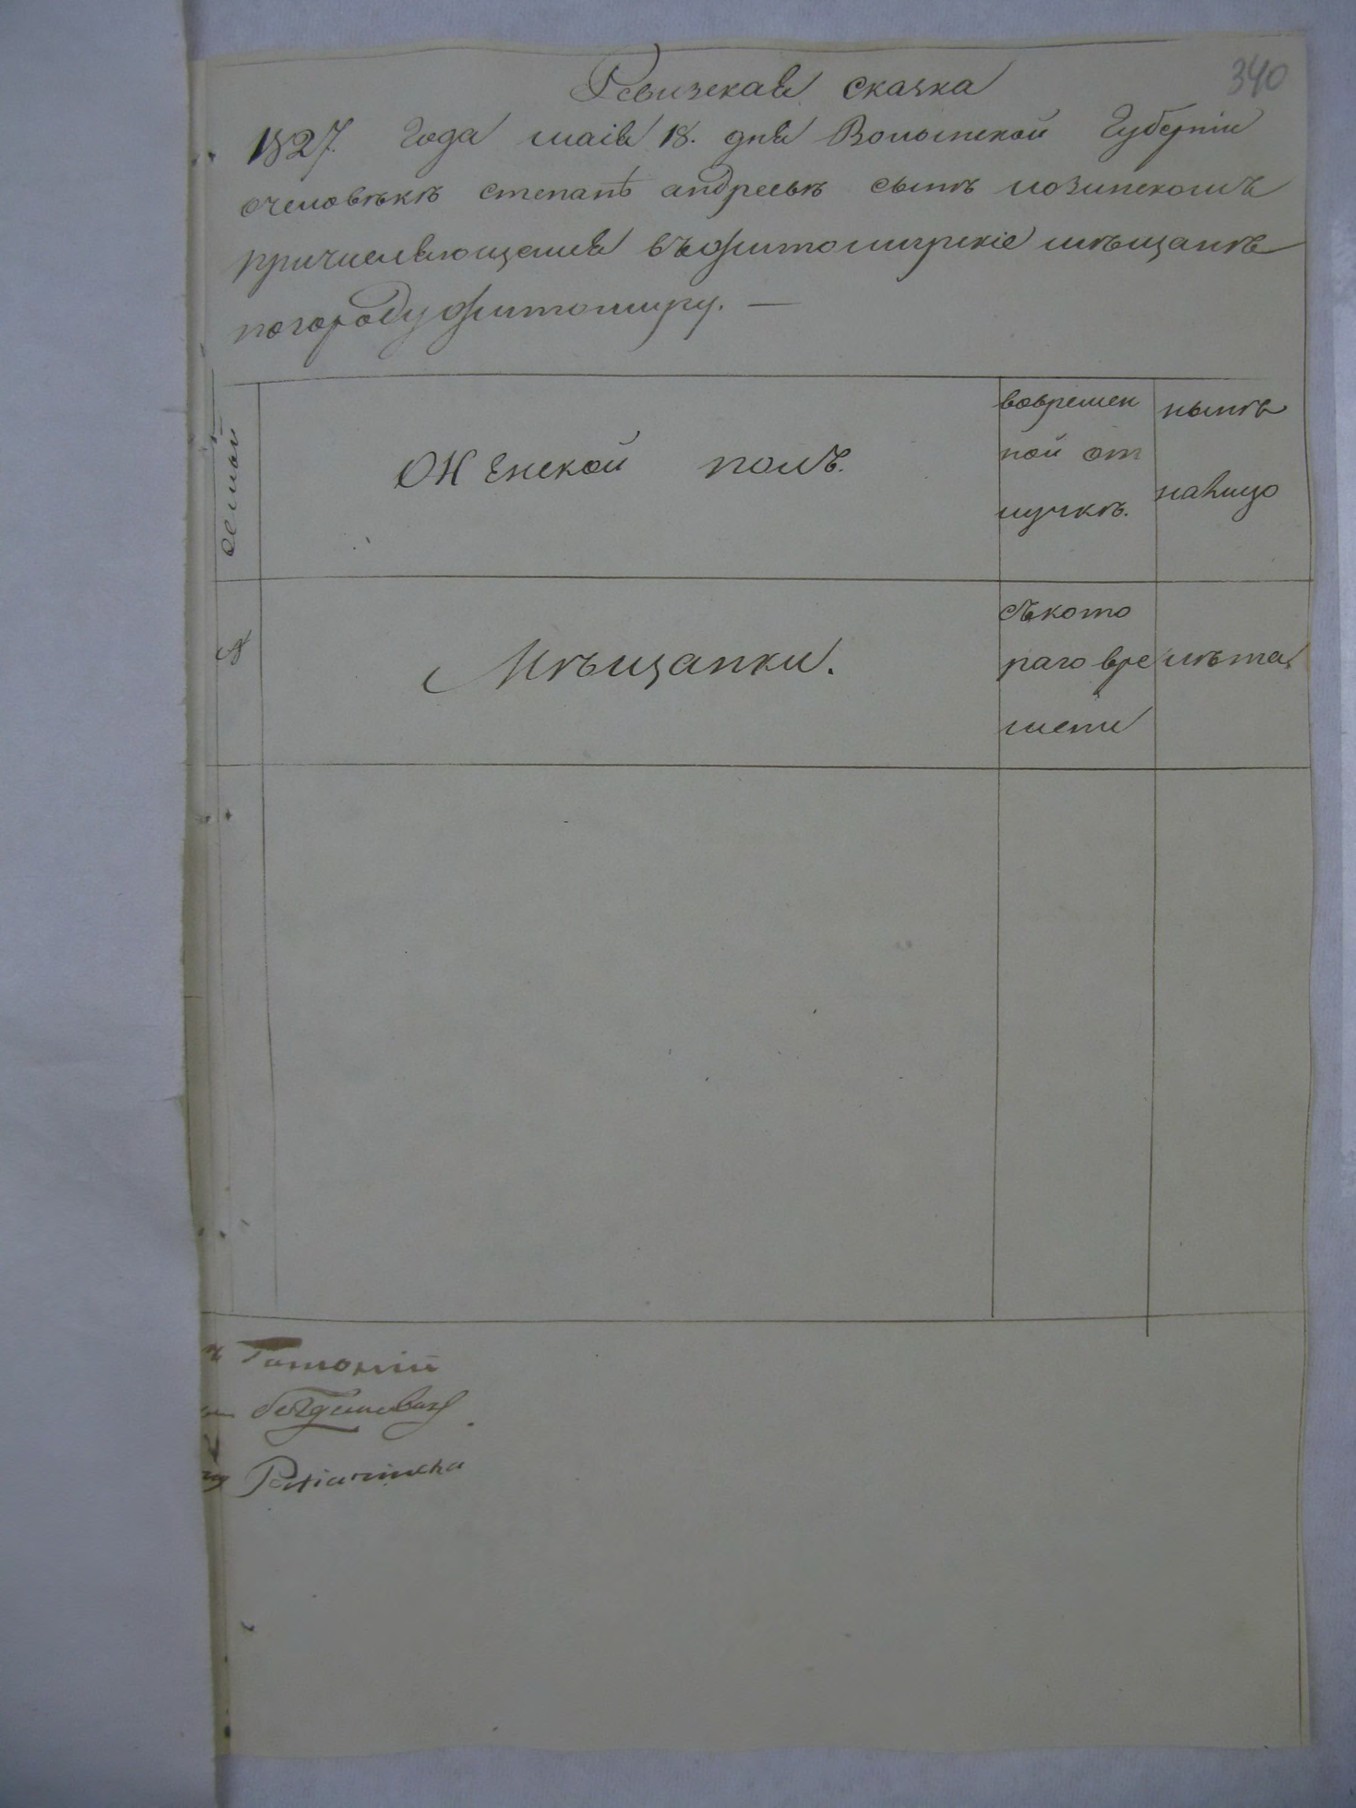 340
Ревизская сказка
1827. Года маія 18. дня Волынской Губерніи
очеловѣкѣ степанѣ андреевѣ сынѣ лозинскомъ
причисляющемся въжитомирскіе мѣщанѣ
погороду житомиру. —
семьй
женской полъ.
вовремен
ной от
лучкѣ.
нынѣ
налицо
№
Мѣщанки.
съкото
раго вре
мени
лѣта